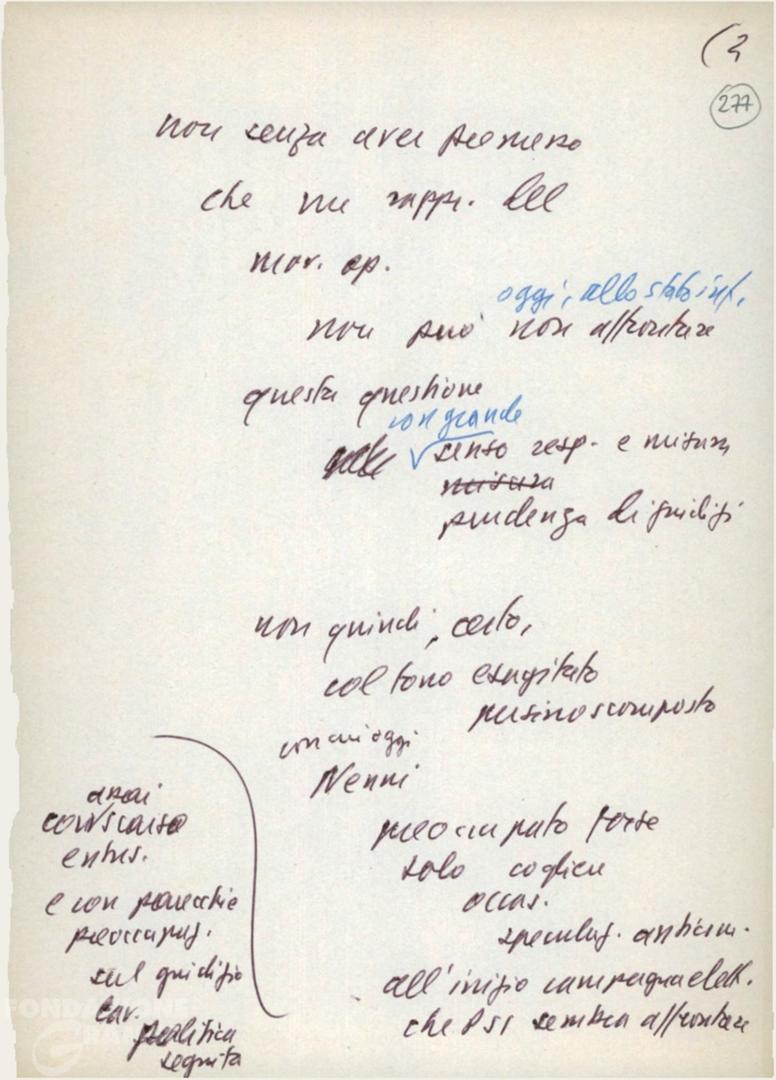 (2
277
non senza aver premesso
che un rappr. del
mov. op.
oggi, allo stato inf.
non può non affrontare
questa questione
con grande
senso resp. e misura
misura
prudenza di giudizi
non quindi, certo,
col tono esagitato
persino scomposto
con cui oggi
Nenni
preoccupato forse
solo cogliere
occas.
speculaz. anticom.
all'inizio campagna elett.
che PSI sembra affrontare
assai
con scarso
entus.
e con parecchie
preoccupaz.
sul giudizio
lav.
politica
seguita
FONDAZIONE
GRAMSCI